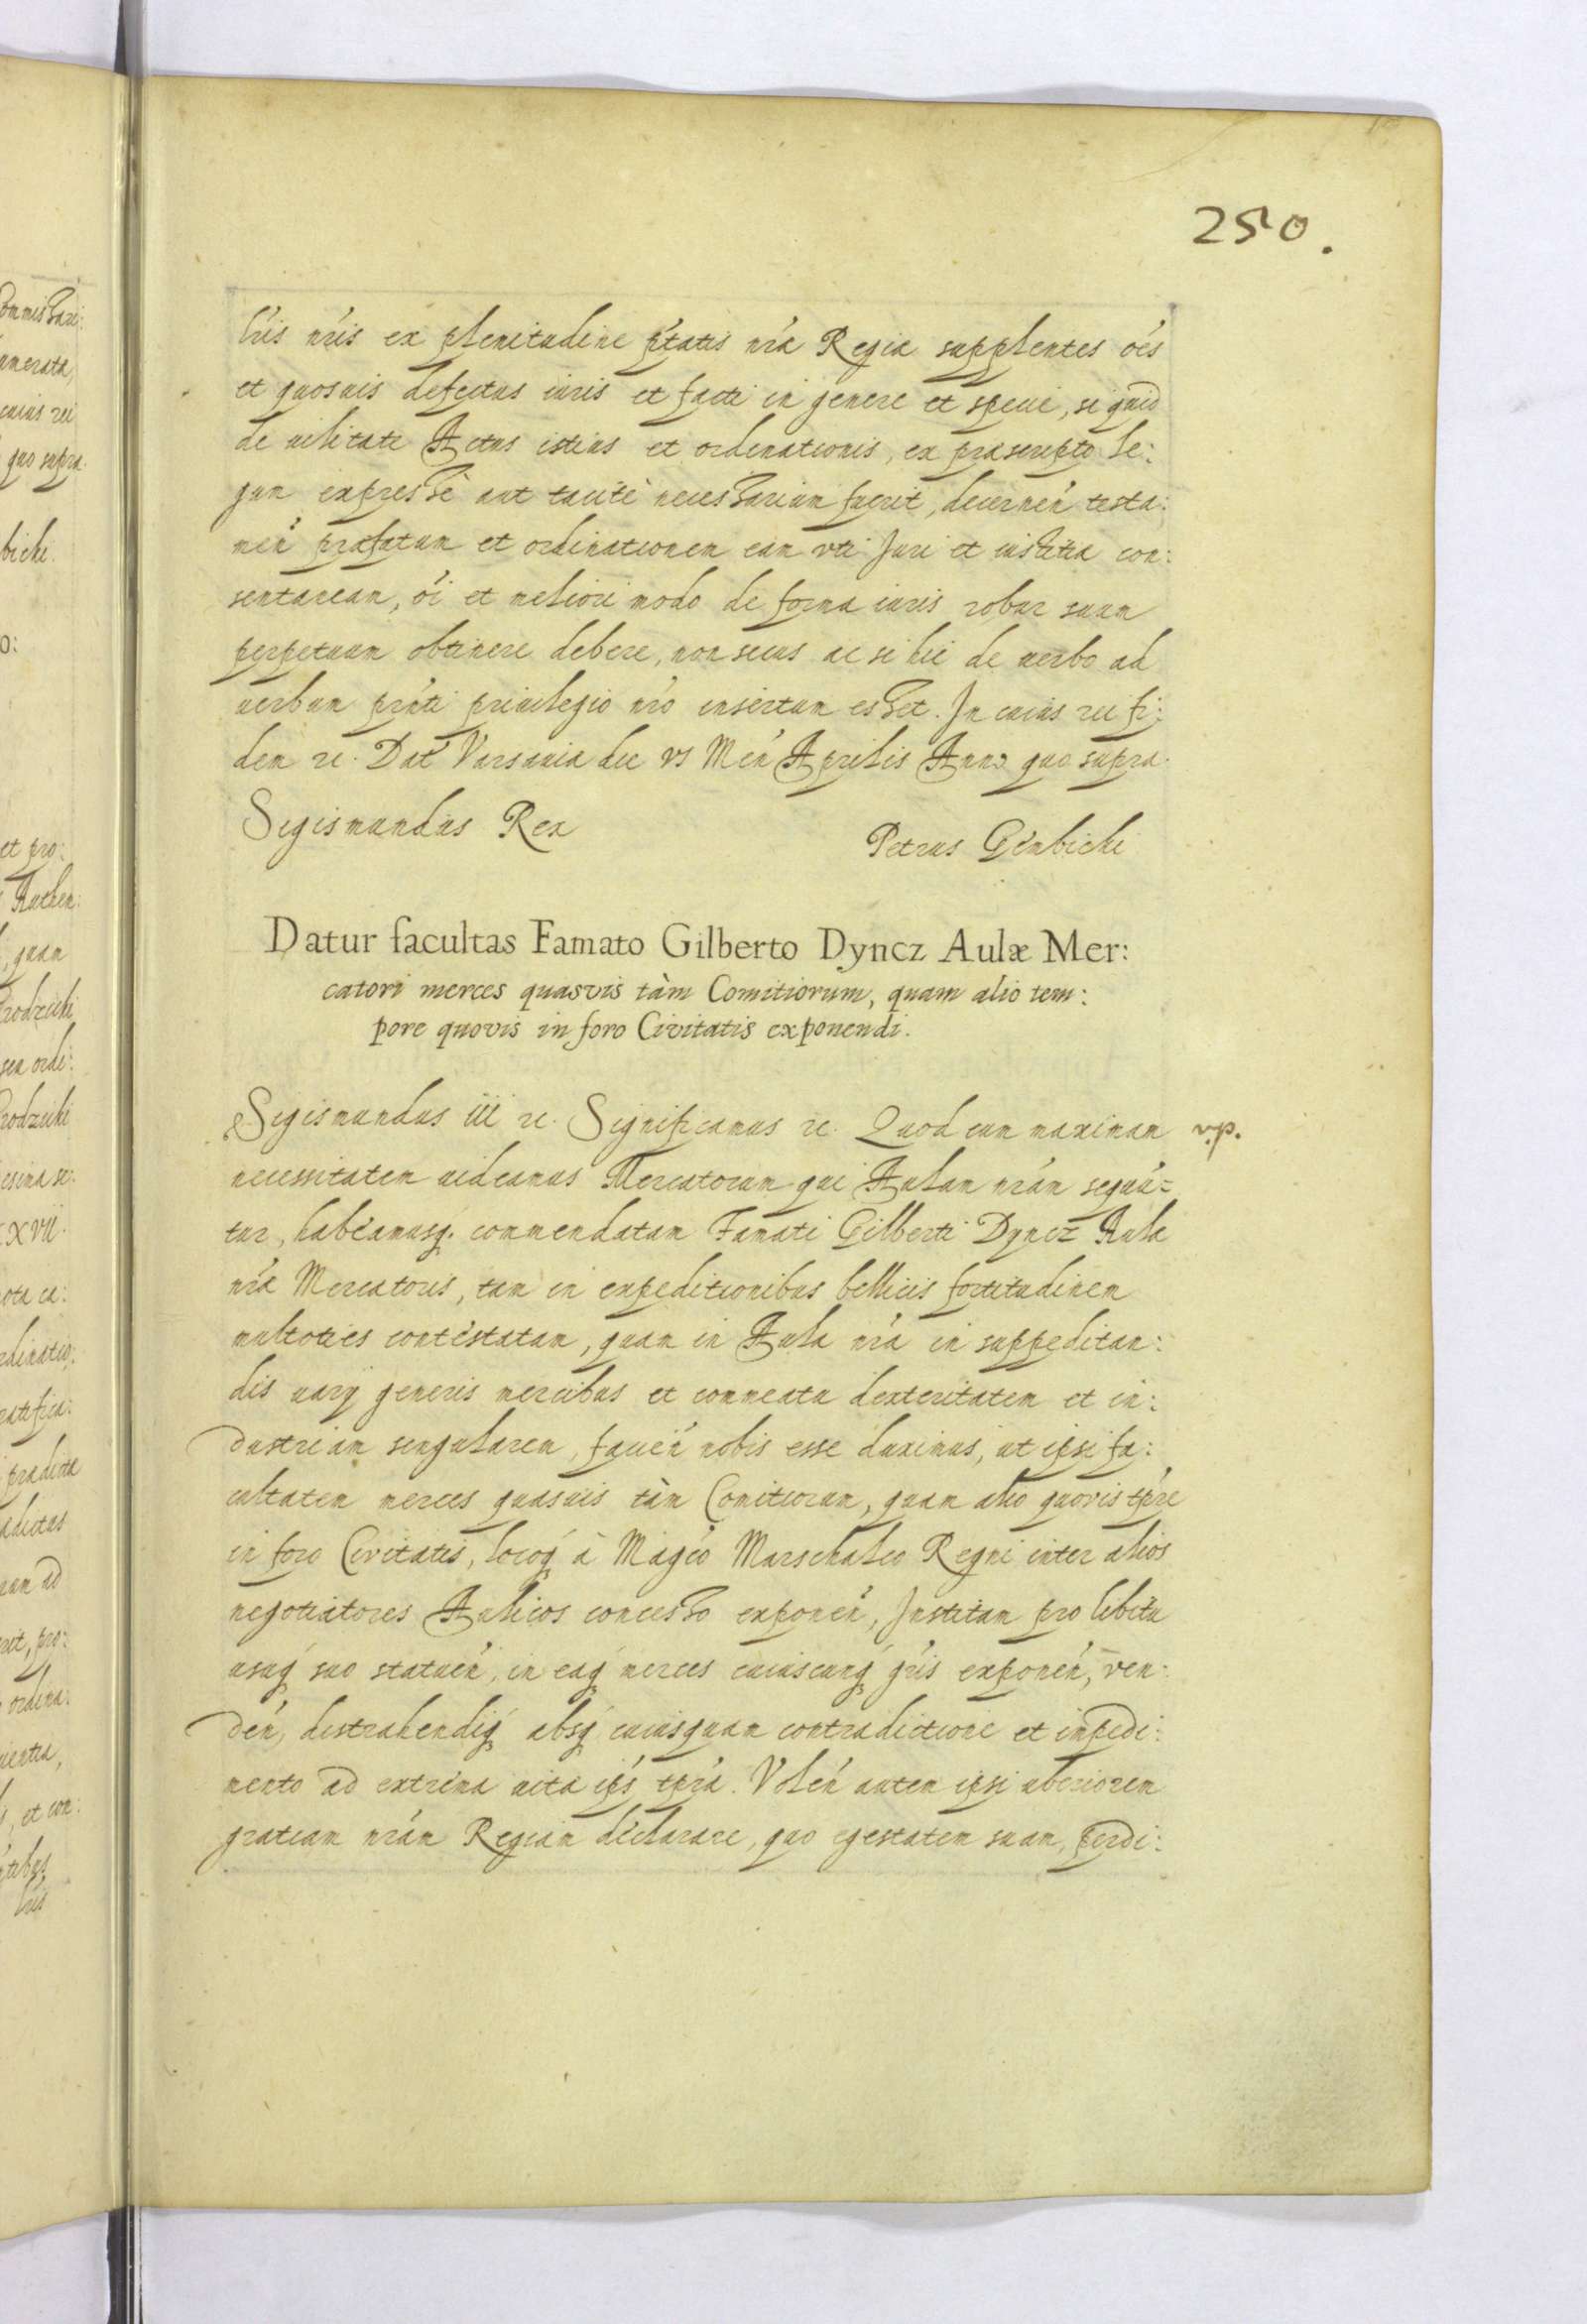 250.
lris nris ex plenitudine ptatis nrã Regia supplentes oẽs
et quosuis defectus iuris et facti in genere et specie, si quid
de utilitate Actus istius et ordinationis, ex præscripto le:
gum expressè aut tacitè necessarium fuerit, decernen̄ testa:
men̄ præfatum et ordinationem eam vti Juri et iustitia con:
sentaneam, oĩ et meliori modo de forma iuris robur suum
perpetuum obtinere debere, non secus ac si hic de uerbo ad
uerbum prñti priuilegio nro insertum esset. In cuius rei fi:
dem zc. Dat Varsauia die VI Men̄ Aprilis Anno quo supra.
Sigismundus Rex
Petrus Gembicki
Datur facultas Famato Gilberto Dyncz Aulæ Mer:
catori merces quasvis tàm Comitiorum, quam alio tem:
pore quovis in foro Civitatis exponendi.
Sigismundus iii zc. Significamus zc. Quod cum maximam
v.p.
necessitatem uideamus Mercatorum qui Aulam nrãm sequũ=
tur, habeamusq. commendatam Famati Gilberti Dyncz Aula
nrã Mercatoris, tam in expeditionibus bellicis fortitudinem
multoties contestatam, quam in Aula nrã in suppeditan:
dis uarij generis mercibus et commeatu dexteritatem et in:
dustriam singularem, fauen̄ nobis esse duximus, ut ipsi fa:
cultatem merces quasuis tàm Comitiorum, quam alio quovis tp̃re
in foro Civitatis, locoq́ à Magco Marschalco Regni inter alios
negotiatores Aulicos concesso exponen̄, Institam pro libitu
usuq́ suo statuen̄, in eaq́ merces cuiuscunq́ gñis exponen̄, ven:
den̄, distrahendiq́ absq́ cuiusquam contradictione et impedi:
mento ad extrema uita ip̃s tp̃ra. Volen̄ autem ipsi uberiorem
gratiam nrãm Regiam declarare, quo egestatem suam, perdi: